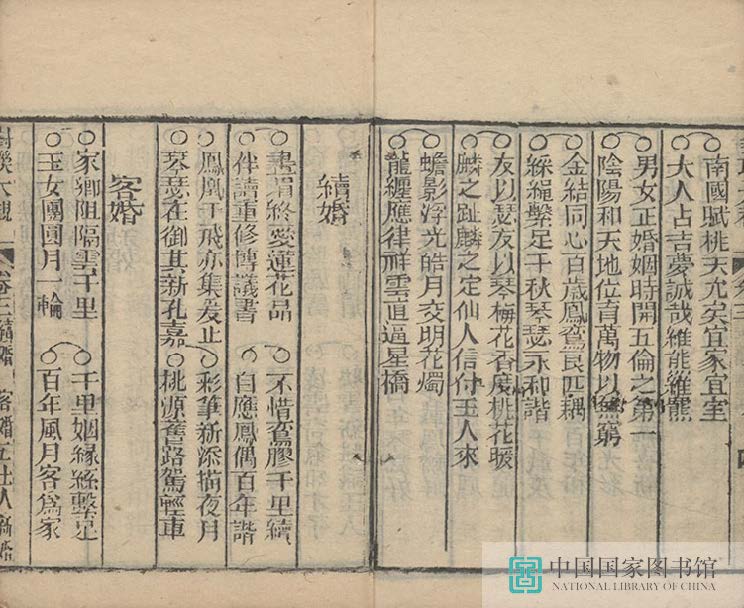 南國賦桃夭允矣宜家宜室
大人占吉夢誠哉維熊維羆
男女正婚姻時開五倫之第一
陰陽和天地位育萬物以無窮
金結同心百歲鳳鸞良匹耦
綵繩繫足千秋琴瑟永和諧
友以瑟友以琴梅花香度桃花暖
麟之趾麟之定仙人信付玉人來
蟾影浮光皓月交明花燭
龍纏應律祥雲直逼星橋
續婚
畫眉終愛蓮花品
不惜鸞膠千里續
伴讀重修博議書
自應鳳偶百年諧
鳳凰于飛亦集爰止
彩筆新添描夜月
琴瑟在御其新孔嘉
桃源舊路駕輕車
客婚
家鄉阻隔雲千里
千里姻緣絲繫足
玉女團圓月一輪
百年風月客為家
對聯大觀 卷三 續婚 客婚
中国国家图书馆
NATIONAL LIBRARY OF CHINA